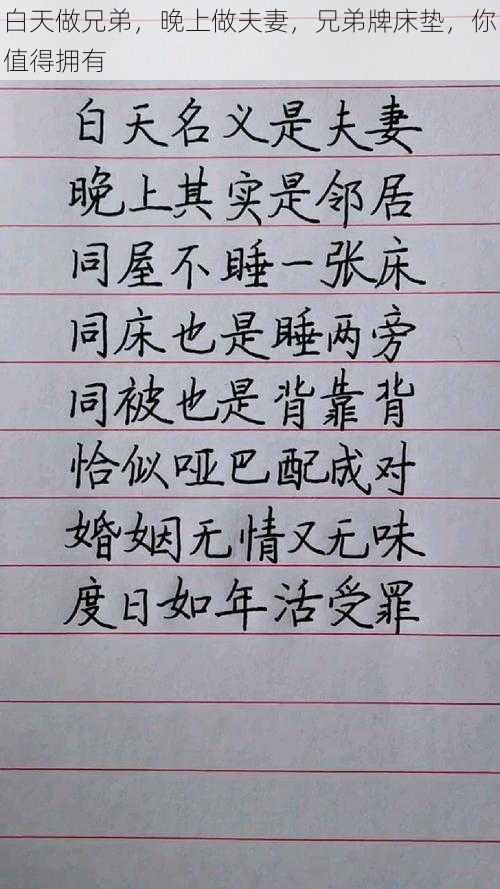 白天做兄弟，晚上做夫妻，兄弟牌床垫，你
值得拥有
白天名义是夫妻
晚上其实是邻居
同屋不睡一张床
同床也是睡两旁
同被也是背靠背
恰似哑巴配成对
婚姻无情又无味
度日如年活受罪